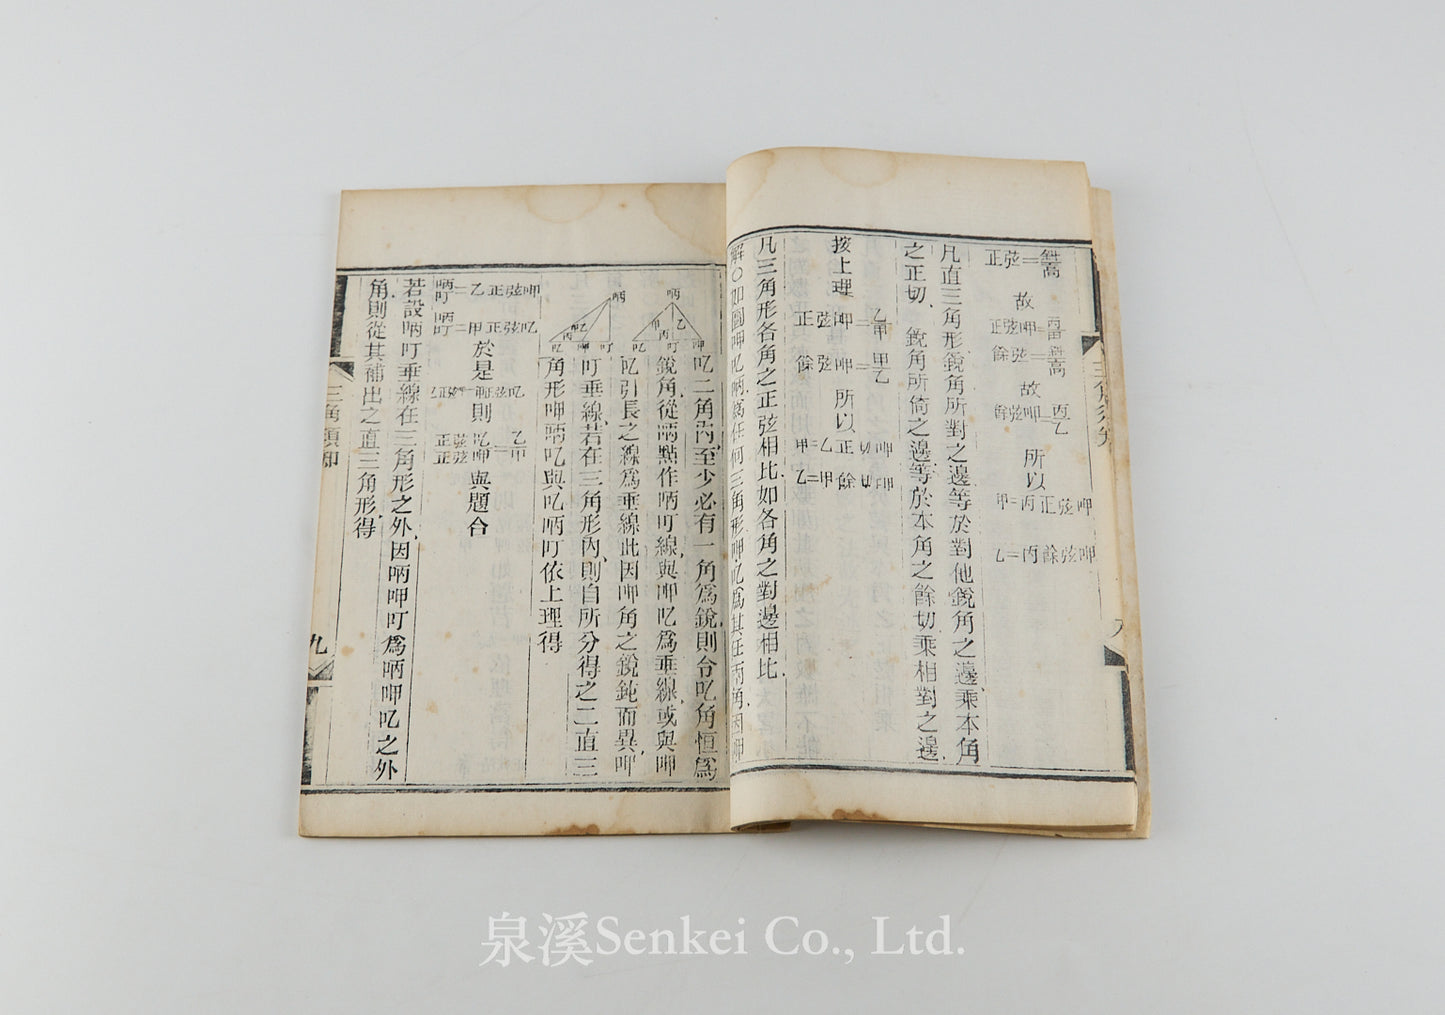 正弦=
故
正弦呷=
餘弦=
故
餘弦呷=丙乙
所以
甲=丙正弦呷
乙=丙餘弦呷
凡直三角形銳角所對之邊等於對他銳角之邊乘本角
之正切、銳角所倚之邊等於本角之餘切乘相對之邊
按上理
正弦呷=乙甲
餘弦呷=甲乙
所以
甲=乙正切呷
乙=甲餘切呷
凡三角形各角之正弦相比如各角之對邊相比
解〇如圖呷吃昞爲任何三角形呷吃爲其任兩角因呷
吃二角內至少必有一角爲銳則令吃角恒爲
銳角從昞點作昞叮線與呷吃爲垂線或與呷
吃引長之線爲垂線此因呷角之銳鈍而異呷
叮垂線若在三角形內則自所分得之二直三
角形呷昞吃與吃昞叮依上理得
昞叮=乙正弦呷
昞叮=甲正弦吃
於是
則
正弦吃正弦呷=乙甲
與題合
若設昞叮垂線在三角形之外因昞呷叮爲昞呷吃之外
角則從其補出之直三角形得
三角須知
九
泉溪Senkei Co., Ltd.